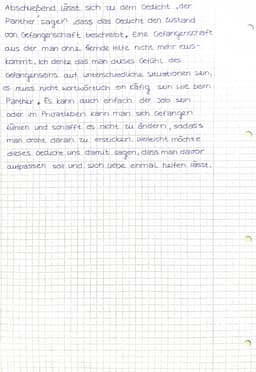 Abschließend lässt sich zu dem Gedicht „der
Panther“ sagen, dass das Gedicht den Zustand
von Gefangenschaft beschreibt. Eine Gefangenschaft
aus der man ohne fremde Hilfe nicht mehr raus-
kommt. Ich denke das man dieses Gefühl des
Gefangenseins auf unterschiedliche Situationen sein,
es muss nicht wortwörtlich ein Käfig sein wie beim
Panther. Es kann auch einfach der Job sein
oder im Privatleben kann man sich gefangen
fühlen und schafft es nicht zu ändern, sodass
man droht daran zu ersticken. Vielleicht möchte
dieses Gedicht uns damit sagen, dass man davor
aufpassen soll und sich liebe einmal helfen lässt.